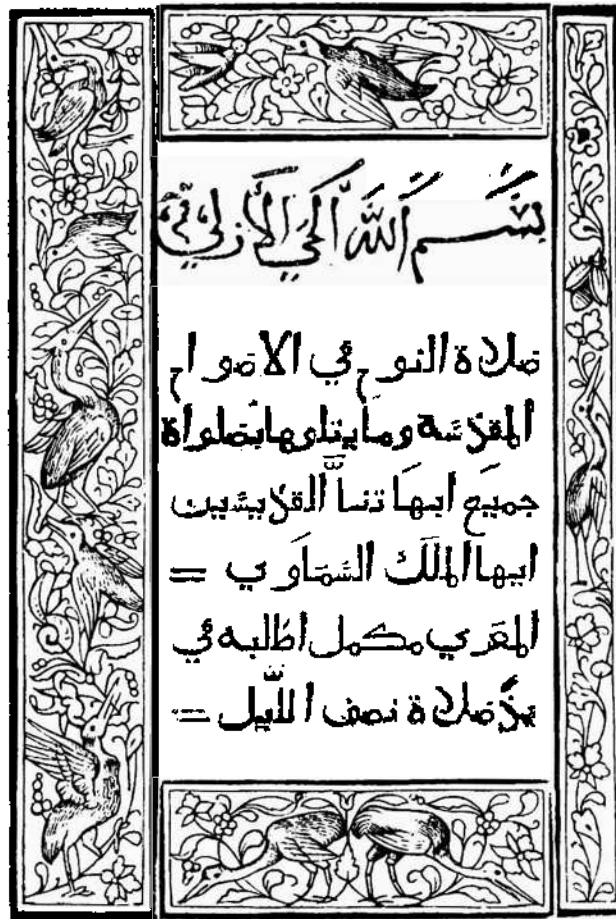 بسم الله الحي الازلي
صلاة النوم في الاصوام
المقدسه وما يتلوها بصلواة
جميع ابهاتنا القديسين
ايها الملك السماوي =
المعزي مكمل اطلبه في
صلاة نصف الليل =